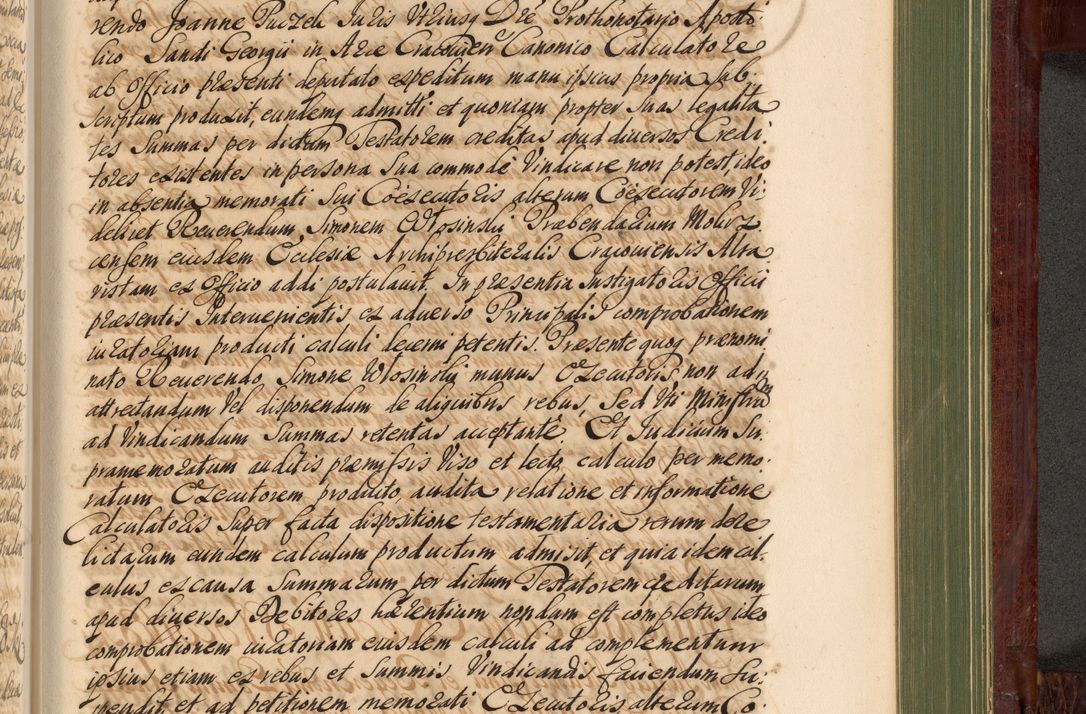 rendo Joanne Puczek Juris Vtriusq Dre Prothonotario Aposto
lico Sandi Georgii in Arce Cracouien Canonico Calculatore
ab Officio præsenti deputato expeditum manu ipsius propria Sub
scriptum produxit, eundemq admitti et quoniam propter Suas legalita
tes Summas per dictum Testatorem creditas apud diuersos Credi
tores existentes in persona Sua commodè Vindicare non potest ideo
in absentia memorati Sui Coexecutoris alterum Coexecutorem Vi
delicet Reuerendum Simonem Wosinski Præbendarium
censem eiusdem Ecclesiæ Archipresbiteralis Cracouiensis Alta
ristam ex Officio addi postulauit. In præsentia Instigatoris Officii
præsentis Interuenientis ex aduerso Principalis comprobationem
iuratoriam producti calculi decerni petentis. Præsente quoq prænomi
nato Reuerendo Simone Wosinski munus Executoris non ad
attrectandum Vel disponendum de aliquibus rebus, Sed Vti Ministrum
ad Vindicandum Summas retentas acceptante. Et Judicium Su
pramemoratum auditis præmissis Viso et lecto calculo per memo
ratum Executorem producto, audita relatione et informatione
Calculatoris Super facta dispositione testamentaria rerum dere
lictarum eundem calculum productum admisit, et quia idem cal
culus ex causa Summarum per dictum Testatorem creditarum
apud diuersos Debitores hærentium nondum est completus ideo
comprobationem iuratoriam eiusdem calculi ad complementum
ipsius etiam ex rebus et Summis Vindicandis faciendum Su
spendit, et ad petitionem memorati Executoris alterum Co